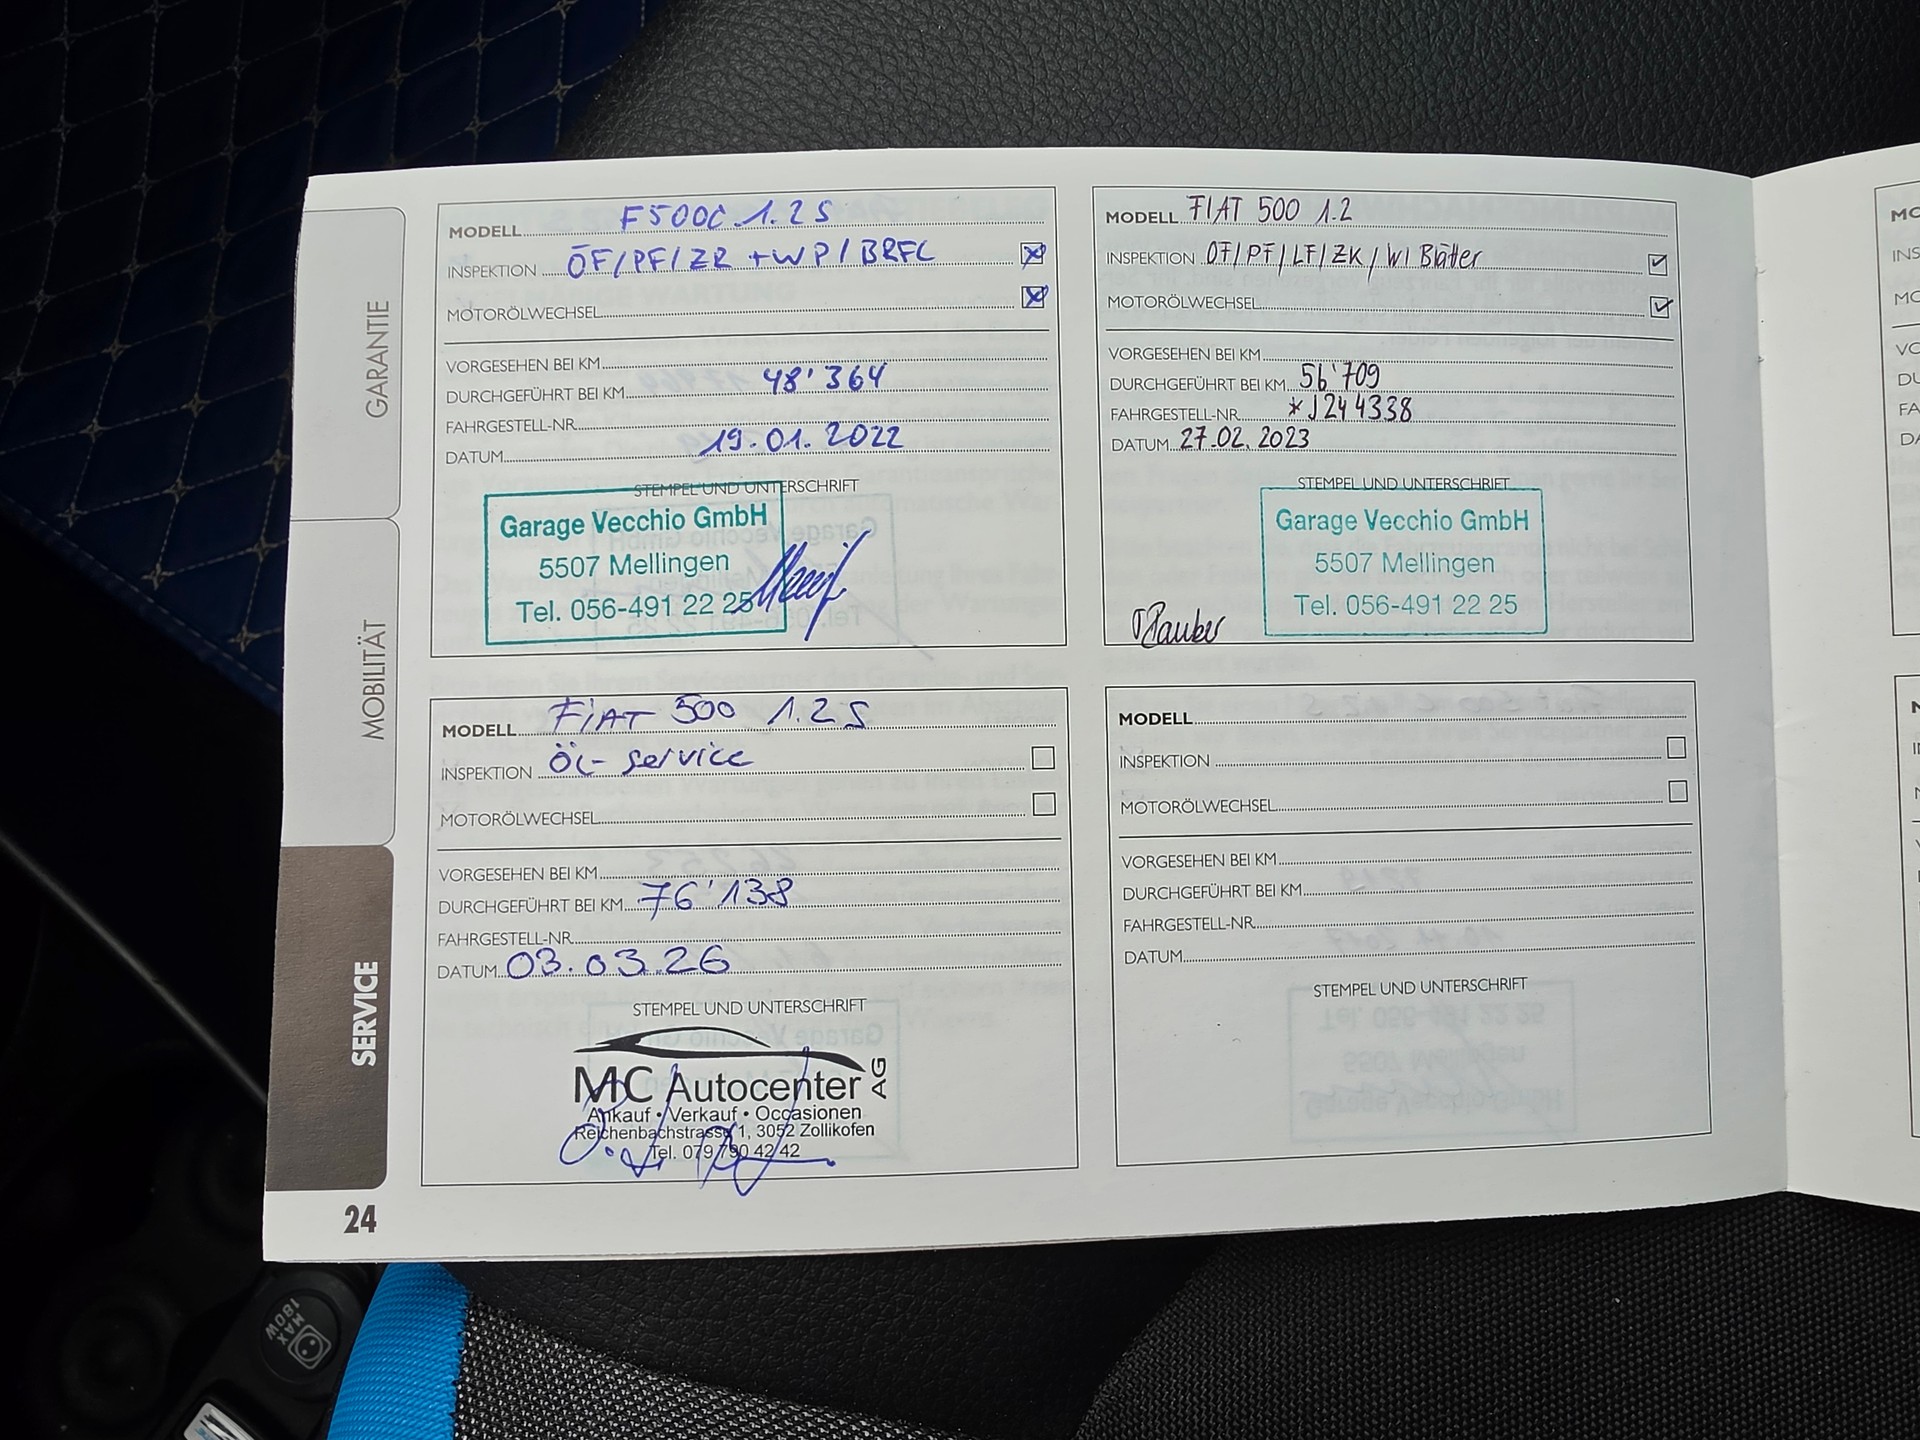 GARANTIE
MOBILITÄT
SERVICE
24
MODELL F500C 1.2 S
INSPEKTION ÖF/PF/ZR +WP/BRFL
MOTORÖLWECHSEL
VORGESEHEN BEI KM
DURCHGEFÜHRT BEI KM 48'364
FAHRGESTELL-NR.
DATUM 19.01.2022
STEMPEL UND UNTERSCHRIFT
Garage Vecchio GmbH
5507 Mellingen
Tel. 056-491 22 25
MODELL FIAT 500 1.2
INSPEKTION ÖF/PF/LF/ZK/WI Blätter
MOTORÖLWECHSEL
VORGESEHEN BEI KM
DURCHGEFÜHRT BEI KM 56'709
FAHRGESTELL-NR. *J244338
DATUM 27.02.2023
STEMPEL UND UNTERSCHRIFT
Garage Vecchio GmbH
5507 Mellingen
Tel. 056-491 22 25
MODELL FIAT 500 1.2 S
INSPEKTION ÖL-service
MOTORÖLWECHSEL
VORGESEHEN BEI KM
DURCHGEFÜHRT BEI KM 76'138
FAHRGESTELL-NR.
DATUM 03.03.26
STEMPEL UND UNTERSCHRIFT
MC Autocenter AG
Ankauf • Verkauf • Occasionen
Reichenbachstrasse 1, 3052 Zollikofen
Tel. 079 790 42 42
MODELL
INSPEKTION
MOTORÖLWECHSEL
VORGESEHEN BEI KM
DURCHGEFÜHRT BEI KM
FAHRGESTELL-NR.
DATUM
STEMPEL UND UNTERSCHRIFT
MAX
180W